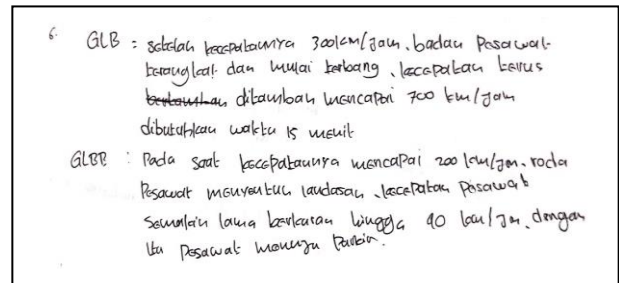 6. GLB : setelah kecepatannya 300 km/jam. badan pesawat
terangkat dan mulai terbang, kecepatan terus
ditambah mencapai 700 km/jam
dibutuhkan waktu 15 menit
GLBB : Pada saat kecepatannya mencapai 200 km/jm. roda
Pesawat menyentuh landasan, kecepatan pesawat
Semakin lama berkurang hingga 40 km/jm, dengan
itu pesawat menuju Parkir.